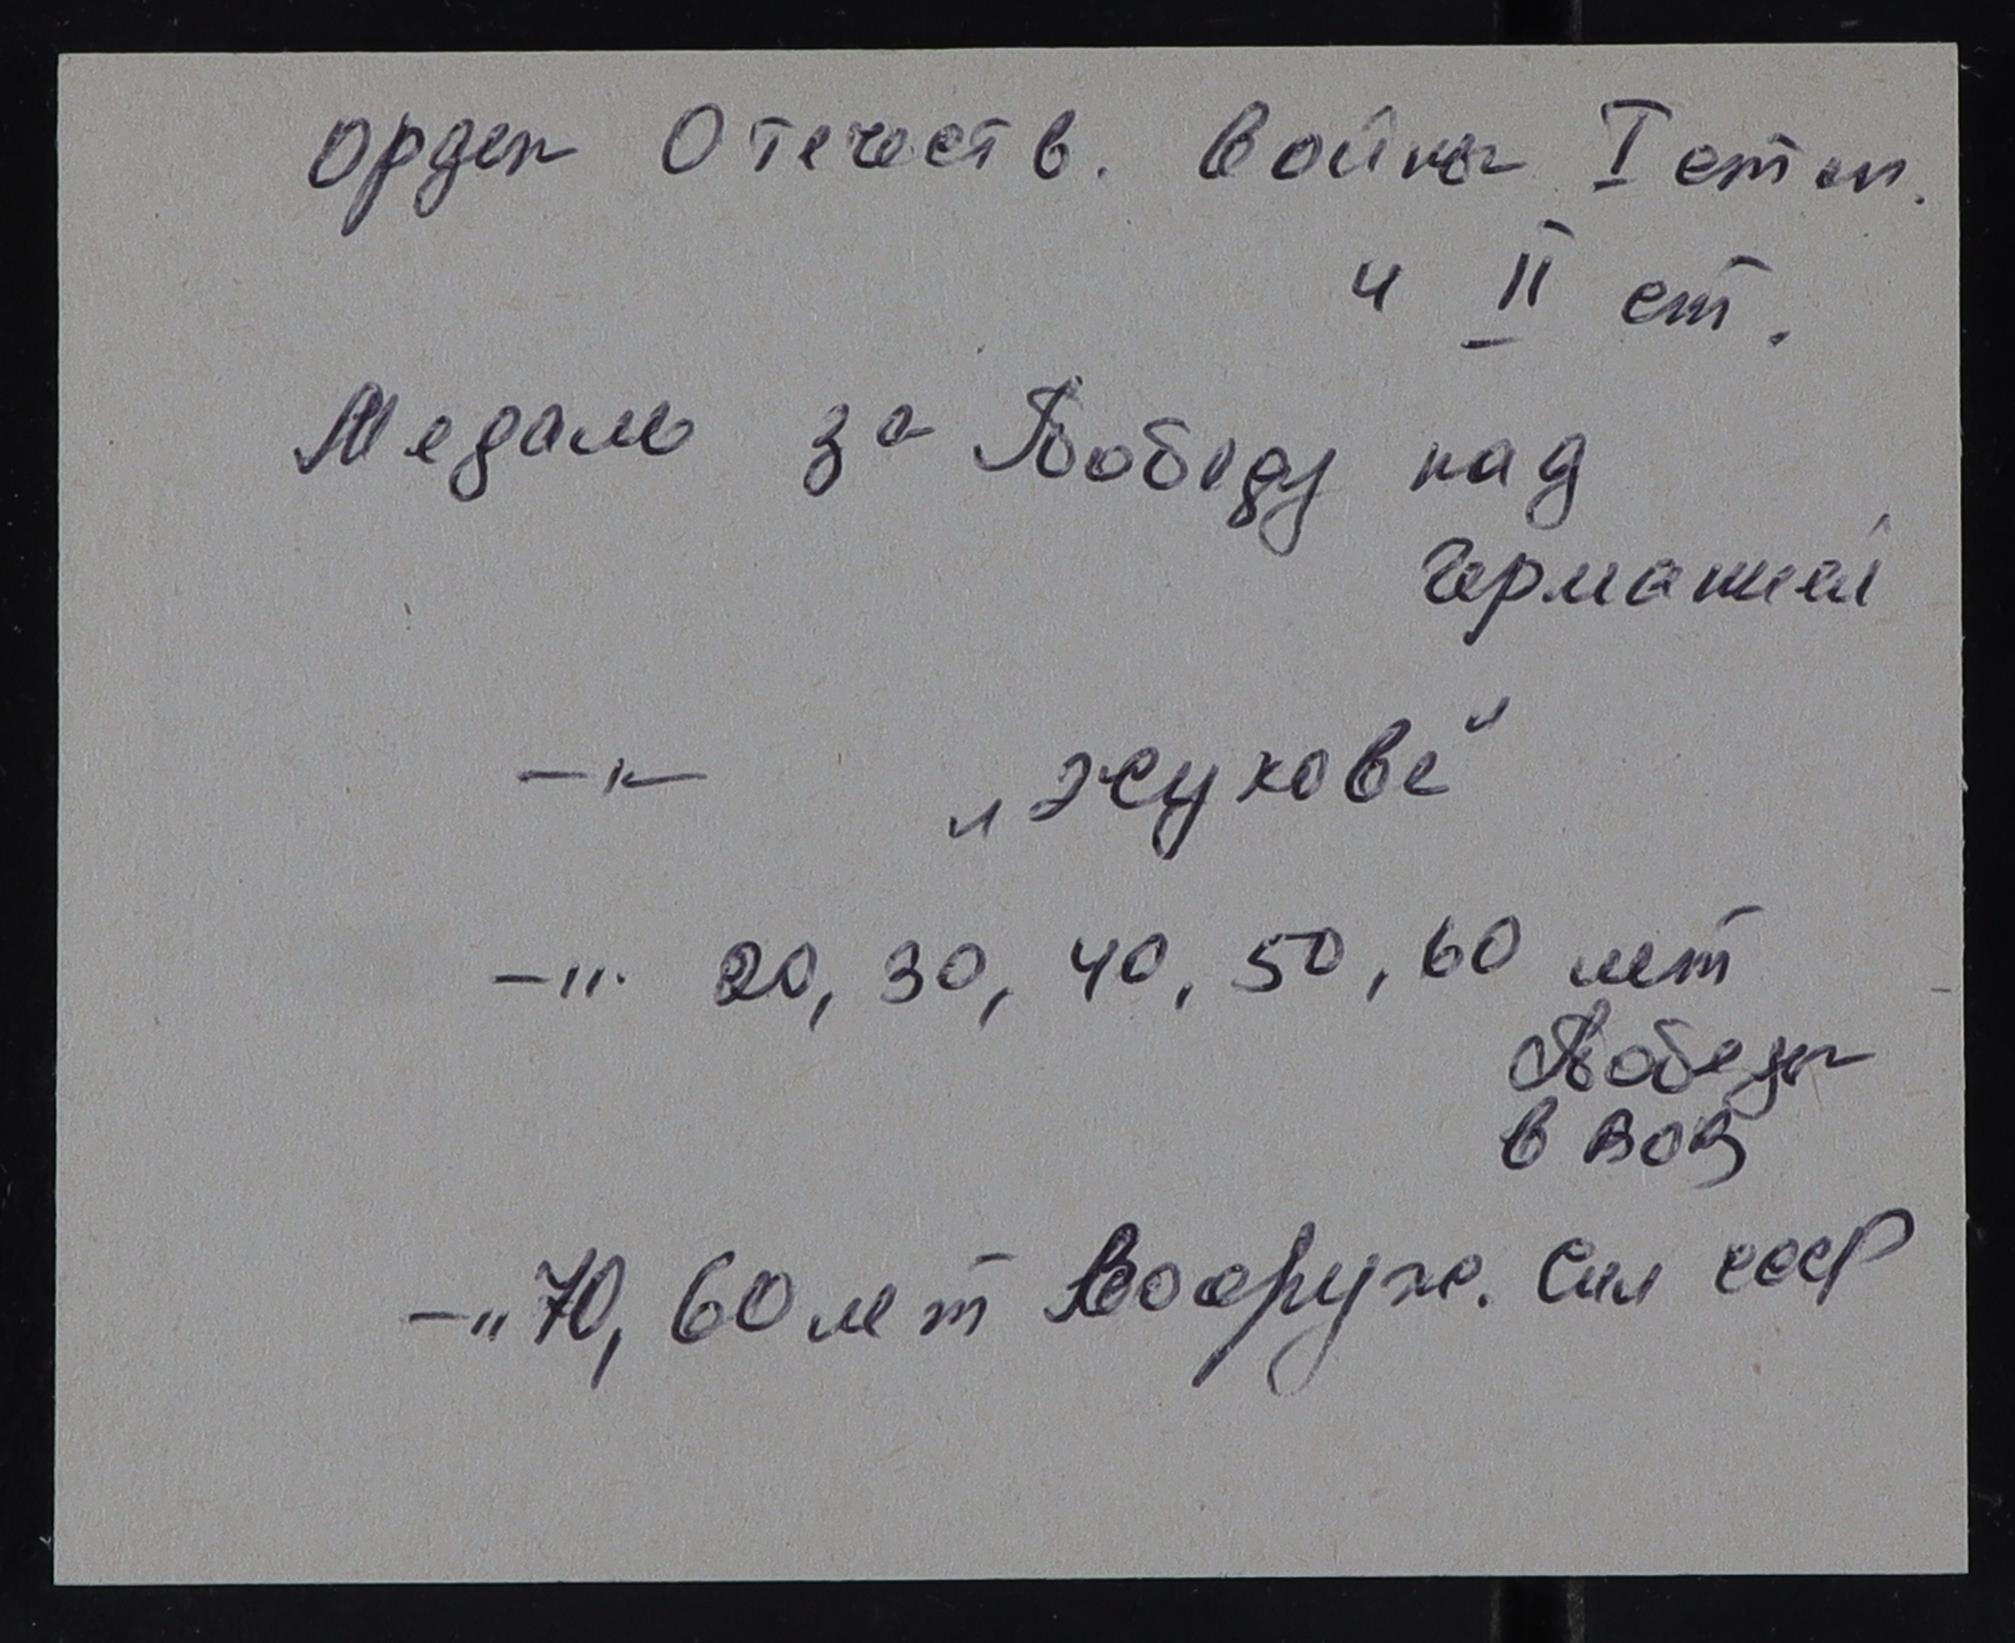 Орден Отечеств. войны I степ.
и II ст.
Медаль за Победу над
Германией
—"— „Жукова"
—". 20, 30, 40, 50, 60 лет
Победы
в ВОВ
—" 70, 60 лет Вооруж. Сил СССР